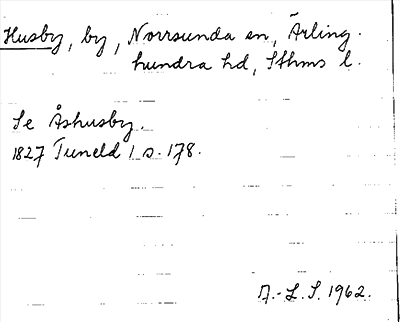 Husby, by, Norrsunda sn, Ärling-
hundra hd, Sthms l.
Se Åshusby.
1827 Tuneld 1 s. 178.
A.-L.S. 1962.